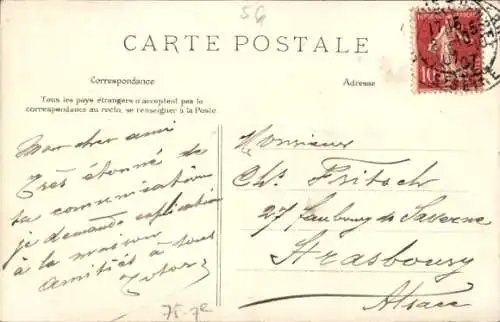 56
CARTE POSTALE
Correspondance
Adresse
Tous les pays étrangers n'acceptent pas la
correspondance au recto, se renseigner à la Poste.
REPUBLIQUE FRANCAISE
10
Mon cher ami
Très étonné de
ta communication
je demande explication
à la maison
Amitiés à tous
Victor
75-7e
Monsieur
Ch. Fritsch
27 Faubourg de Saverne
Strasbourg
Alsace